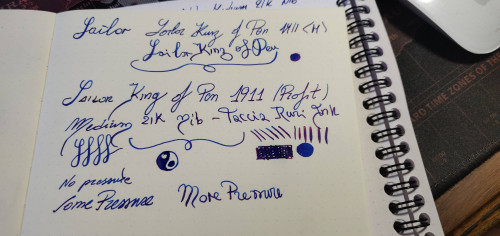 Medium 21K Nib
Sailor Sailor King of Pen 1911 (M)
Sailor King of Pen
Sailor King of Pen 1911 (Profit)
Medium 21K Nib - Taccia Ruri Ink
No pressure
Some Pressure More Pressure
TIME ZONES OF THE